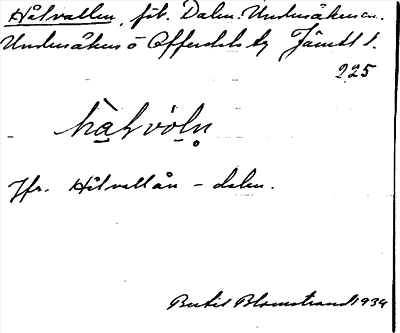 Håtvallen, fäb. Dalen. Undersåkers sn.
Undersåkers o Offerdals tg Jämtl l.
225
hatvoln
Jfr. Håtvallån – dalen.
Bertil Blomstrand 1934